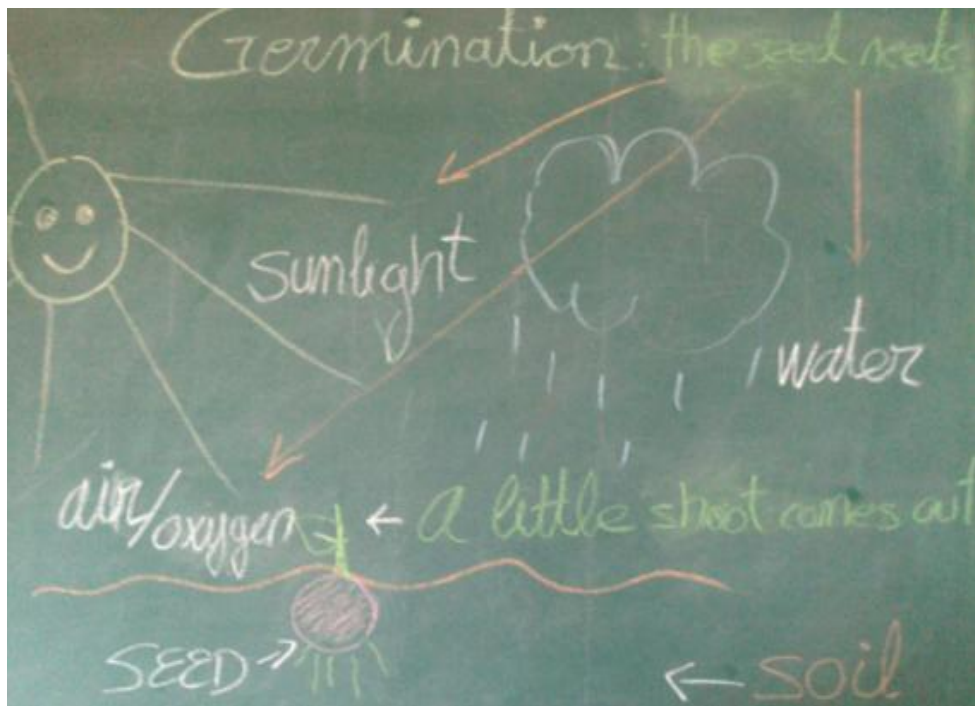 Germination: the seed needs
sunlight
water
air/oxygen
← a little shoot comes out
SEED →
← soil